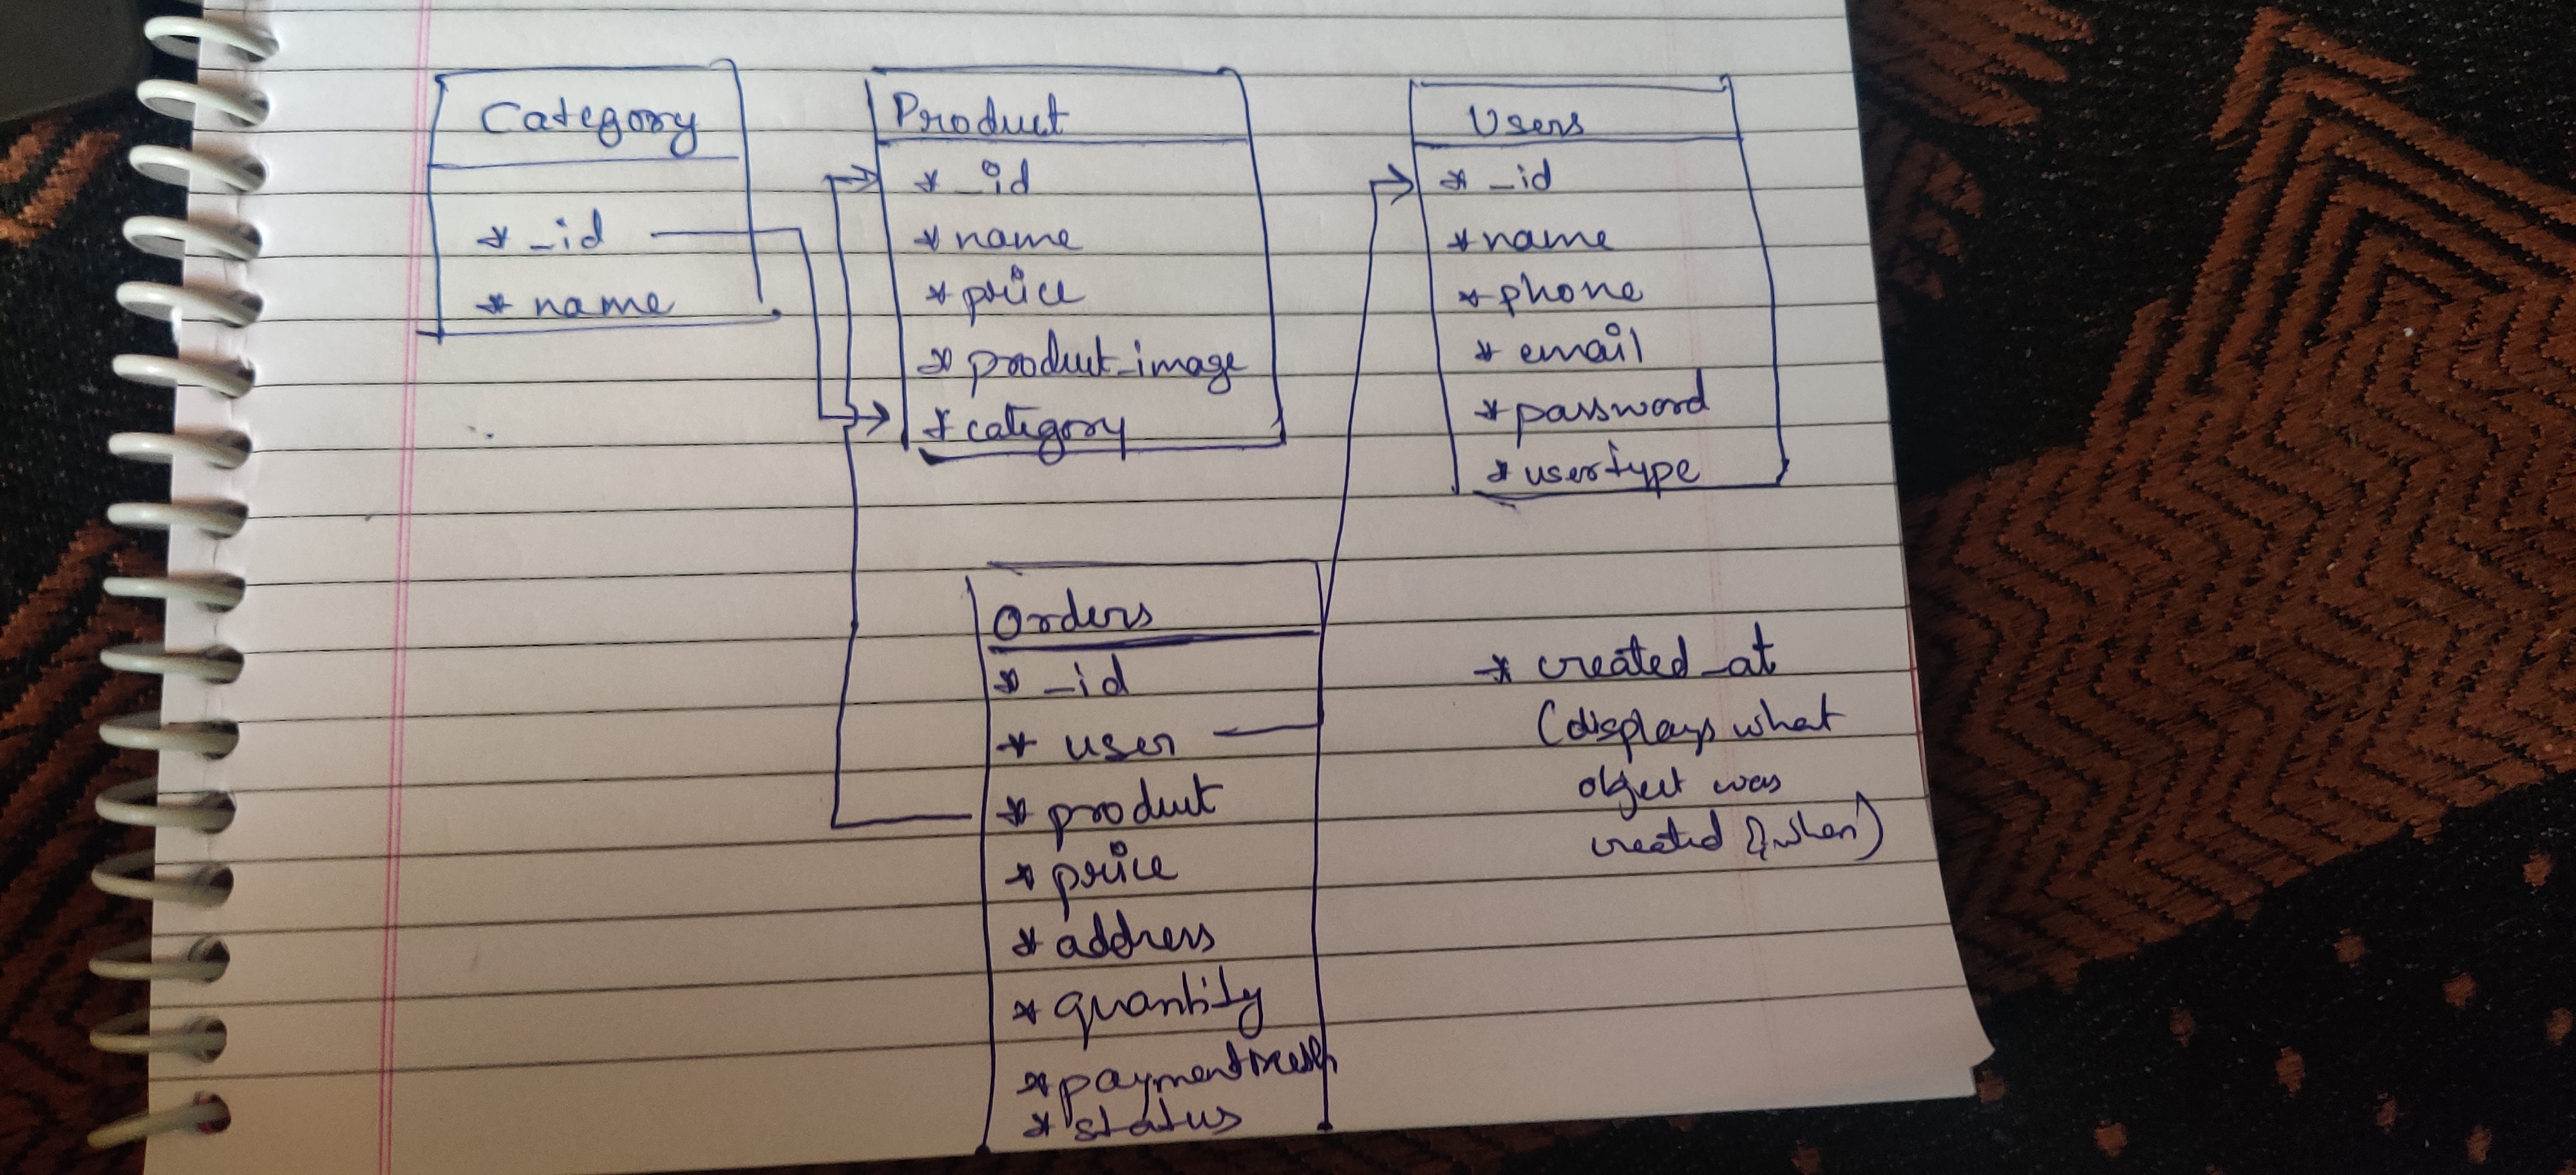 Category
* _id
* name
Product
* _id
* name
* price
* product_image
* category
Users
* _id
* name
* phone
* email
* password
* usertype
Orders
* _id
* user
* product
* price
* address
* quantity
* payment
* status
* created_at
(displays what
object was
created & when)